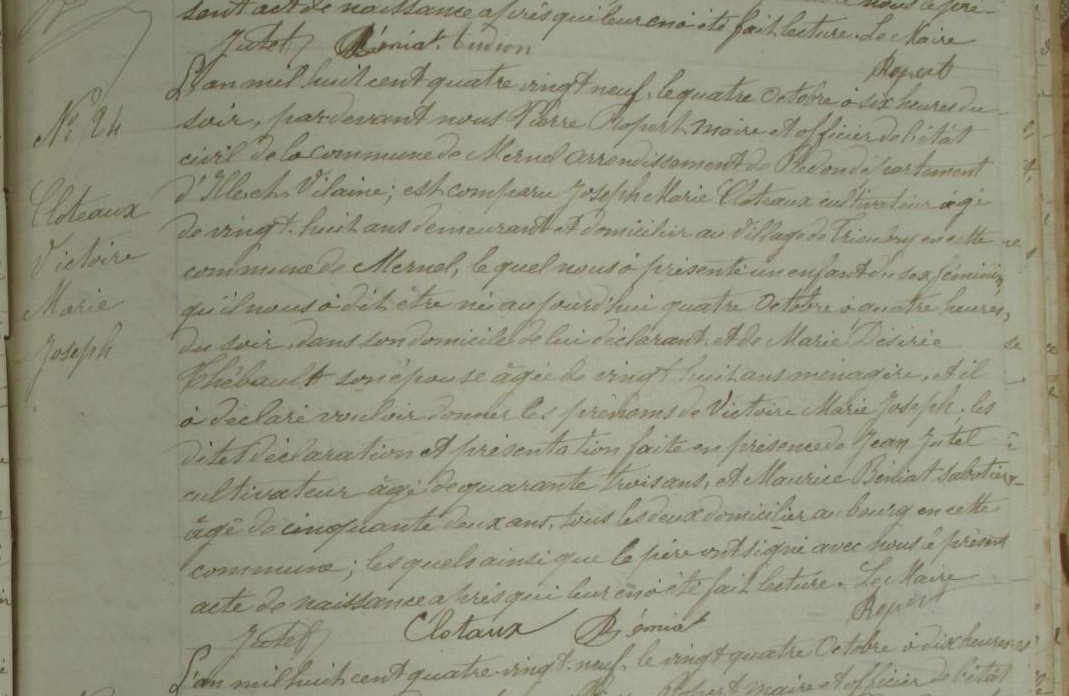 sent act de naissance après qui leur en ò été fait lecture. Le Maire
Jutel Béniat Ropert
L'an mil huit cent quatre vingt neuf, le quatre Octobre à six heures du
soir, par devant nous Pierre Ropert maire et officier de l'état
civil de la commune de Mernel arrondissement de Redon département
d'Ille et Vilaine; est comparu Joseph Marie Cloteaux cultivateur âgé
de vingt huit ans demeurant et domicilier au Village de en cette
commune de Mernel, le quel nous ò présenté un enfant du sex féminin,
qu'il nous ò dit être né aujourd'hui quatre Octobre à quatre heures,
du soir, dans son domicile de lui déclarant. et de Marie Désirée
Thébault son épouse âgée de vingt huit ans ménagère, et il
ò déclaré vouloir donner les prénoms de Victoire Marie Joseph. les
dites déclaration et présentation faite en présence de Jean Jutel
cultivateur âgé de quarante trois ans, et Maurice Béniat sabotier
âgé de cinquante deux ans, tous les deux domicilier au bourg en cette
commune; les quels ainsi que le père ont signé avec nous le présent
acte de naissance après qui leur en ò été fait lecture. Le Maire
Jutel Clotaux Béniat Ropert
L'an mil huit cent quatre-vingt-neuf, le vingt quatre Octobre à dix heures
Ropert maire et officier de l'état
No. 24
Cloteaux
Victoire
Marie
Joseph